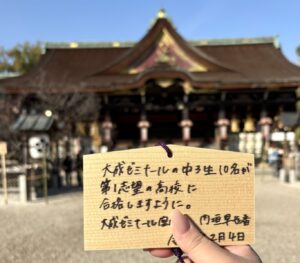 大成ゼミナールの中3生10名が
第1志望の高校に
合格しますように。
大成ゼミナール 円垣
2月4日